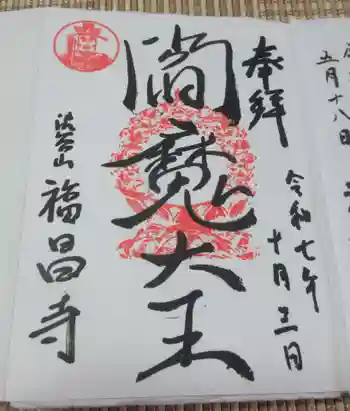 五月十八日
奉拝
令和七年十月三日
閻魔大王
渋谷山
福昌寺